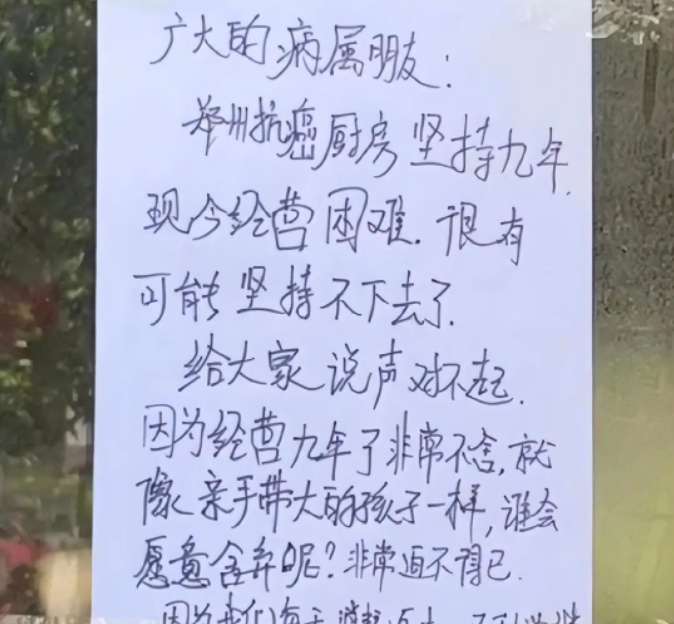 广大的病属朋友:
郑州抗癌厨房坚持九年.
现今经营困难.很有
可能坚持不下去了.
给大家说声对不起.
因为经营九年了非常不舍,就
像亲手带大的孩子一样,谁会
愿意舍弃呢?非常迫不得已.
因为我们每天